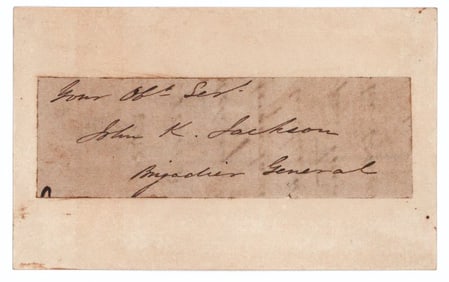 Your Obt. Sert.
John K. Jackson
Brigadier General